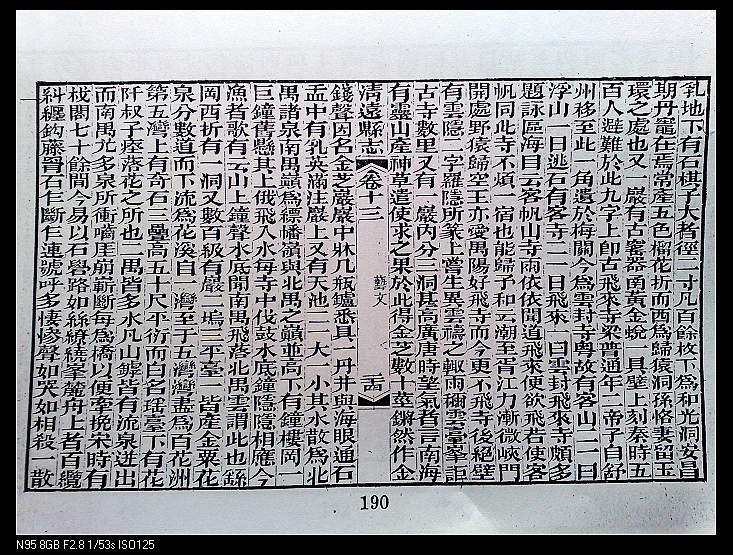 乳地下有石棋子大者徑二寸凡百餘枚下為和光洞安昌
期丹竈在焉常產五色榴花折而西為歸猿洞孫恪妻留玉
環之處也又一巖有古寶器南黃金蛻一具壁上刻秦時五
百人避難於此九字上即古飛來寺梁普通年二帝子自舒
州移至此一角遺於梅關今為雲封寺粵故有客山二一曰
浮山一曰逃石有客寺二一曰飛來一曰雲封飛來寺頗多
題詠區海目云客帆山寺雨依依聞道飛來便欲飛若使客
帆同此寺不煩一宿也能歸予和云潮至胥江力漸微峽門
開處野猿歸空王亦愛禺陽好飛寺而今更不飛寺後絕壁
有雲隱二字羅隱所篆上嘗生異雲禱之輒雨稱雲臺拳詎
古寺數里又有一巖內分三洞甚高廣唐時望氣者言南海
有靈山產神草遣使求之果於此得金芝數十莖鏘然作金
清遠縣志 卷十三 藝文 二十四
錢聲因名金芝巖巖中牀几瓶鑪悉具丹井與海眼通石
盂中有乳英滿注巖上又有天池二一大一小其水散為北
禺諸泉南禺巔為縹幡嶺與北禺之巔並高下有鐘樓岡一
巨鐘舊懸其上俄飛入水每寺中伐鼓水底鐘隱隱相應今
漁者歌有云山上鐘聲水底聞南禺飛落北禺雲謂此也鐘
岡西折有一洞又數百級有巖二塢三平臺一皆產金粟花
泉分數道而下流為花溪自一灣至于五灣灣盡為百花洲
第五灣上有奇石三疊高五十尺平衍而白名瑤臺下有花
阡叔子瘞落花之所也二禺皆多水凡山罅皆有流泉迸出
而南禺尤多泉所衝嚙厓崩嶄斷每為橋以便牽挽宋時有
棧閣七十餘間今易以石磴路如絲繚繞峯麓舟上者百纜
糾纏鈎藤罥石乍斷乍連號呼多悽慘聲如哭如相殺一散
190
N95 8GB F2.8 1/53s ISO125